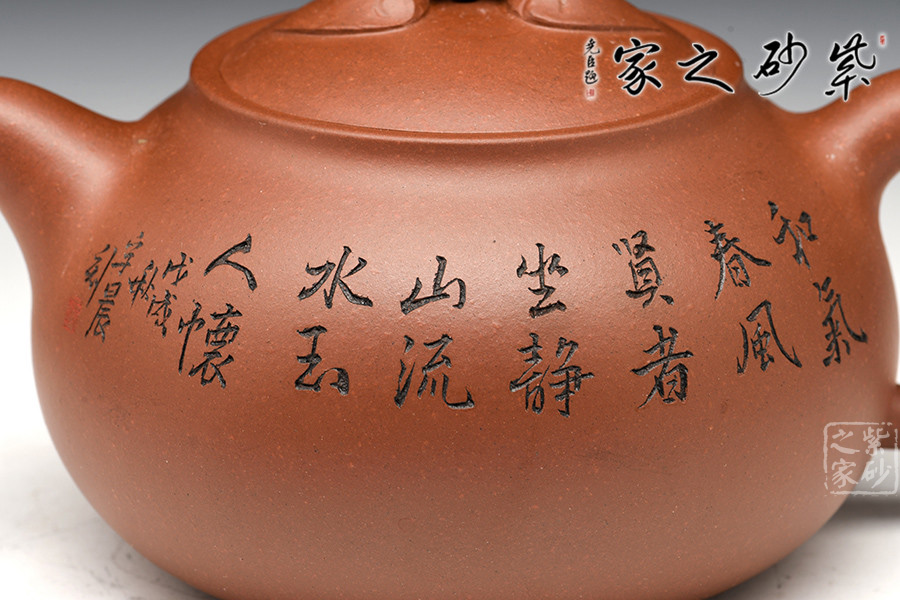 紫砂之家
和氣
春風
賢者
坐靜
山流
水玉
人懷
戊戌
紫砂
之家